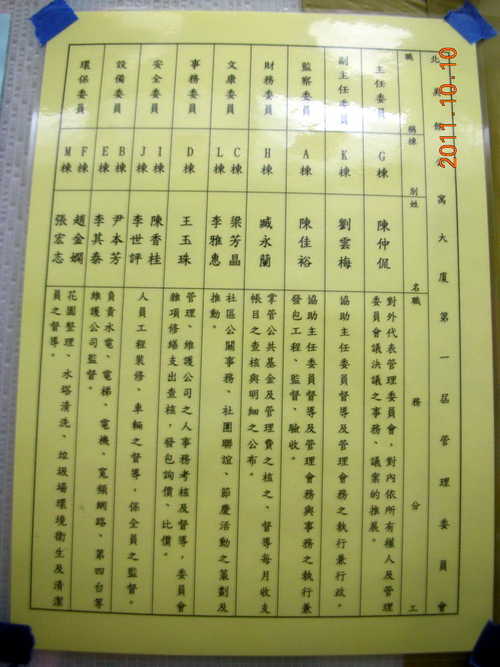 寓大廈第一屆管理委員會
職稱
棟別
姓名
職務分工
主任委員
G棟
陳仲侃
對外代表管理委員會,對內依所有權人及管理
委員會議決議之事務、議案的推展。
副主任委員
K棟
劉雲梅
協助主任委員督導及管理會務之執行兼行政。
監察委員
A棟
陳佳裕
協助主任委員督導及管理會務與事務之執行兼
發包工程、監督、驗收。
財務委員
H棟
臧永蘭
掌管公共基金及管理費之核之、督導每月收支
帳目之查核與明細之公布。
文康委員
C棟
L棟
梁芳晶
李雅惠
社區公關事務、社團聯誼、節慶活動之策劃及
推動。
事務委員
D棟
王玉珠
管理、維護公司之人事務考核及督導,委員會
雜項修繕支出查核,發包詢價、比價。
安全委員
I棟
J棟
陳香桂
李世評
人員工程裝修、車輛之督導,保全員之監督。
設備委員
B棟
E棟
尹本芳
李其泰
負責水電、電梯、電機、寬頻網路、第四台等
維護公司監督。
環保委員
F棟
M棟
趙金嫻
張宏志
花園整理、水塔清洗、垃圾場環境衛生及清潔
員之督導。
2011.10.10